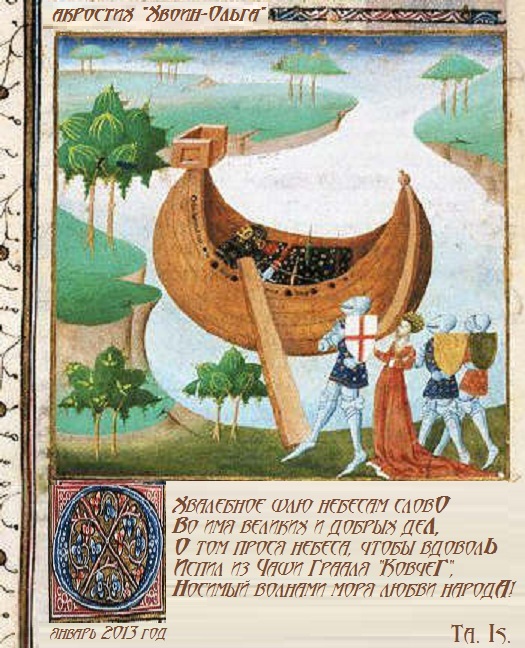 акростих "Хвоин-Ольга"
Хвалебное шлю небесам словО
Во имя великих и добрых деЛ,
О том прося небеса, чтобы вдоволЬ
Испил из Чаши Грааля "КовчеГ",
Носимый волнами моря любви народА!
январь 2013 год
Ta. Is.